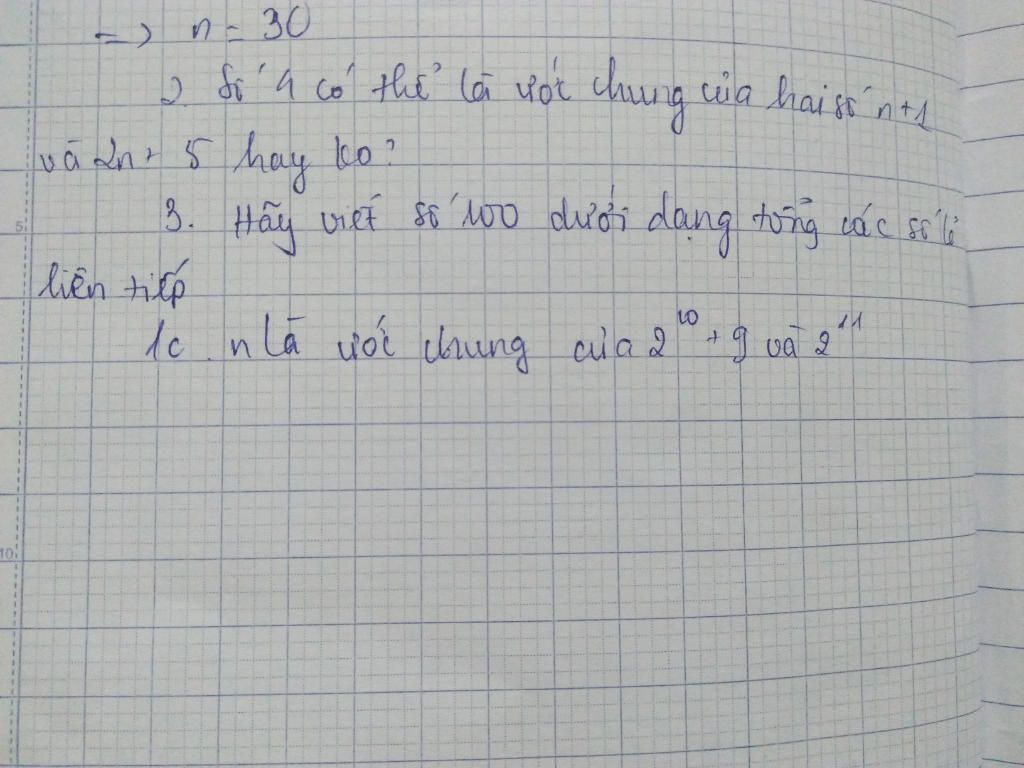 => n = 30
2. Số 4 có thể là ước chung của hai số n+1
và 2n + 5 hay ko?
3. Hãy viết số 100 dưới dạng tổng các số lẻ
liên tiếp
1c. n là ước chung của 2¹⁰ + 9 và 2¹¹
5
10